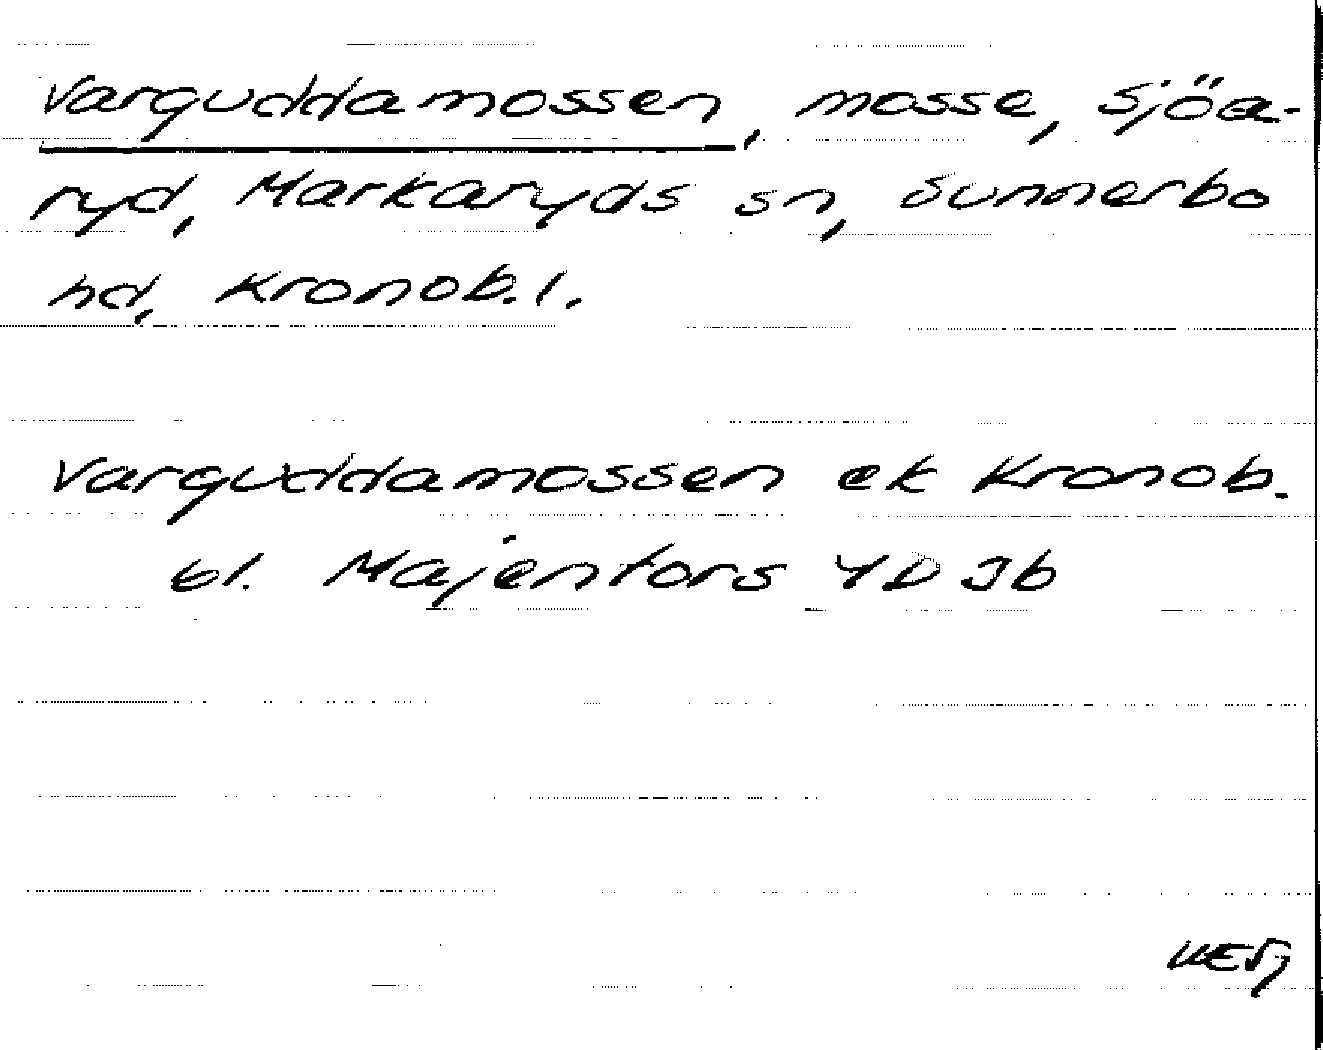 Varguddamossen, mosse, Sjöa-
ryd, Markaryds sn, Sunnerbo
hd, Kronob. l.
Varguddamossen ek Kronob.
bl. Majenfors 4D Jb